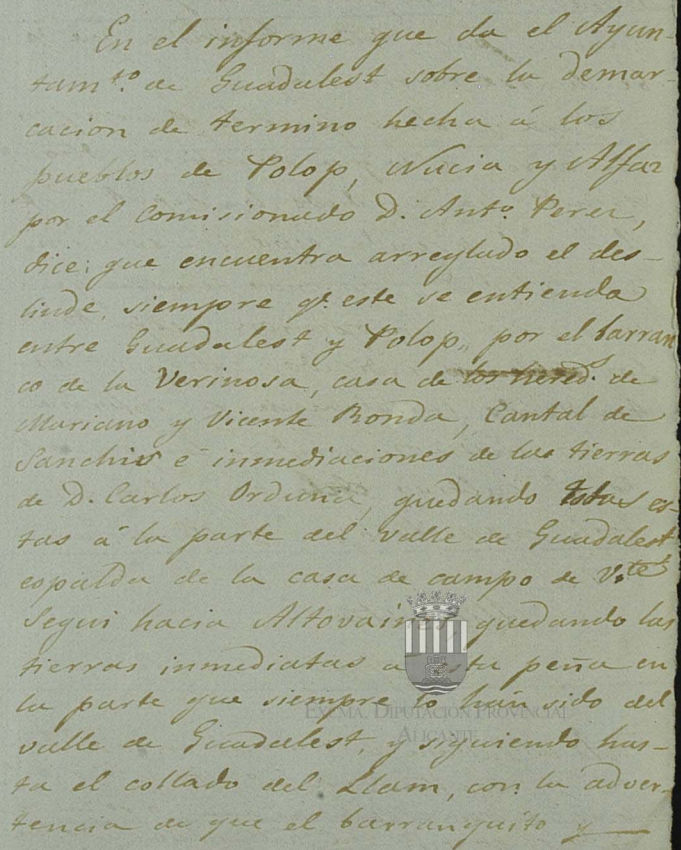 En el informe que da el Ayun-
tam.to de Guadalest sobre la demar-
cacion de termino hecha á los
pueblos de Polop, Nucia y Alfaz
por el Comisionado D. Ant.o Perez,
dice: que encuentra arreglado el des-
linde, siempre q.e este se entienda
entre Guadalest y Polop, por el barran
co de la Verinosa, casa de los hered.s de
Mariano y Vicente Ronda, Cantal de
Sanchis é inmediaciones de las tierras
de D. Carlos Orduña, quedando es-
tas á la parte del valle de Guadalest
espalda de la casa de campo de V.te
Segui hacia quedando las
tierras inmediatas a esta peña en
la parte que siempre lo han sido del
valle de Guadalest, y siguiendo has-
ta el collado del Llam, con la adver-
tencia de que el barranquito y
EXCMA. DIPUTACIÓN PROVINCIAL
ALICANTE